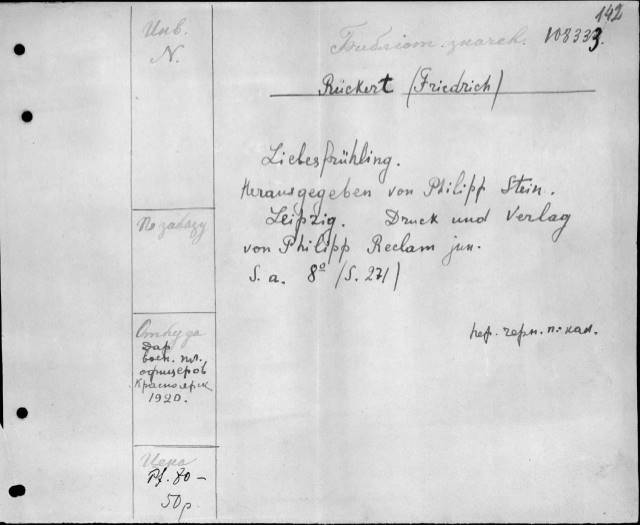 142
Инв.
N.
108333.
Rückert (Friedrich)
Liebesfrühling.
Herausgegeben von Philipp Stein.
Leipzig. Druck und Verlag
von Philipp Reclam jun.
S. a. 8° /S. 271/
По заказу
пер. черн. п.-кал.
Откуда
Дар
воен. пл.
офицеров
Красноярск
1920.
Цена
Pf. 80 –
50 р.